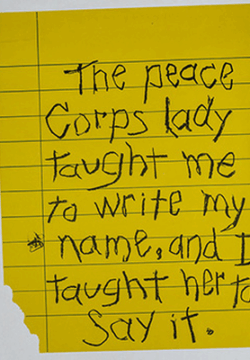 The peace
Corps lady
taught me
to write my
name, and I
taught her to
Say it.